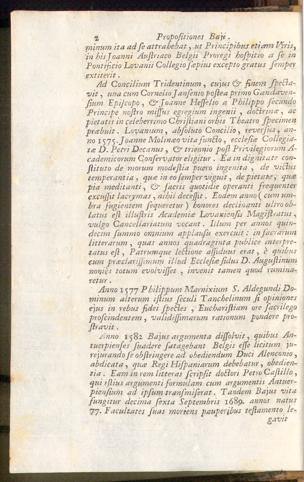 2 Propositiones Baji.
minum ita ad se attrahebat, ut Principibus etiam Viris,
in his Joanni Austriaco Belgii Proregi hospiti a se in
Pontificio Lovanii Collegio sæpius excepto gratus semper
extiterit.
Ad Concilium Tridentinum, cujus & finem specta-
vit, una cum Cornelio Jansenio postea primo Gandaven-
sium Episcopo, & Joanne Hesselio a Philippo secundo
Principe nostro missus egregium ingenii, doctrinæ, ac
pietatis in celeberrimo Christiani orbis Theatro specimen
præbuit. Lovanium, absoluto Concilio, reversus, an-
no 1575. Joanne Molinæo vita functo, ecclesiæ Collegia-
tæ D. Petri Decanus, & triennio post Privilegiorum A-
cademicorum Conservator eligitur. Ea in dignitate con-
stituto de morum modestia parto ingenita, de victus
temperantia, quæ in eo semper viguit, de pietate, quæ
pia meditanti, & sacris quotidie operanti frequenter
excussit lacrymas, nihil decessit. Eodem anno (cum um-
bra fugientem sequeretur) honores decusianti ultro ob-
latus est illustris Academiæ Lovaniensis Magistratus,
vulgo Cancellariatum vocant. Illum per annos quin-
decim summo omnium applausu exercuit: in sacrarum
litterarum, quas annos quadraginta publice interpre-
tatus est, Patrumque lectione assiduus erat, è quibus
cum præclarissimum illud Ecclesiæ sidus D. Augustinum
novies totum evolvisset, invenit tamen quod rumina-
retur.
Anno 1577 Philippum Marnixium S. Aldegundi Do-
minum alterum istius seculi Tanchelinum si opiniones
ejus in rebus fidei spectes, Eucharistiam ore sacrilego
proscindentem, validissimarum rationum pondere pro-
stravit.
Anno 1582 Bajus argumenta dissolvit, quibus An-
tuerpienses suadere satagebant Belgis esse licitum ju-
rejurando se obstringere ad obediendum Duci Alenconio,
abdicata, quæ Regi Hispaniarum debebatur, obedien-
tia. Eam in rem litteras scripsit doctori Petro Castillo,
qui istius argumenti formulam cum argumentis Antuer-
piensium ad ipsum transmiserat. Tandem Bajus vita
fungitur decima sexta Septembris 1689. annos natus
77. Facultates suas moriens pauperibus testamento le-
gavit